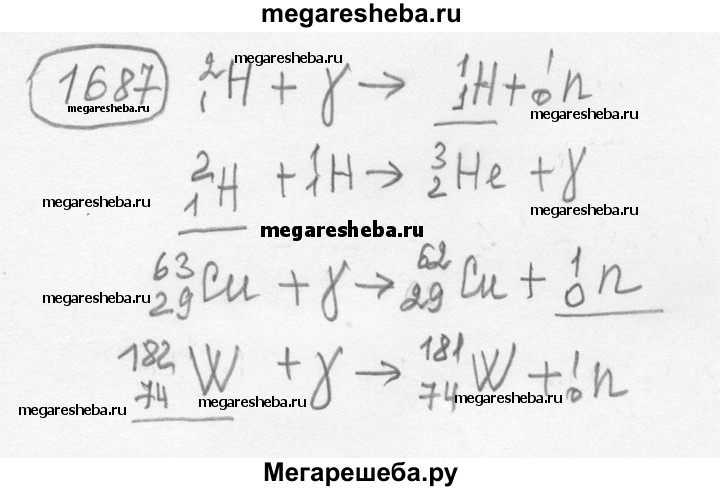 megaresheba.ru
megaresheba.ru
1687 ²₁H + γ → ¹₁H + ¹₀n
megaresheba.ru megaresheba.ru
²₁H + ¹₁H → ³₂He + γ
megaresheba.ru megaresheba.ru
megaresheba.ru
⁶³₂₉Cu + γ → ⁶²₂₉Cu + ¹₀n
megaresheba.ru megaresheba.ru
¹⁸²₇₄W + γ → ¹⁸¹₇₄W + ¹₀n
megaresheba.ru megaresheba.ru megaresheba.ru
Мегарешеба.ру